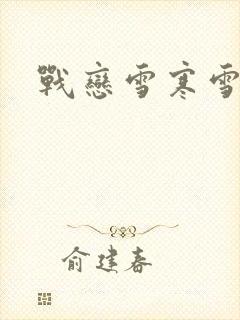 戰戀雪寒雪
俞建春